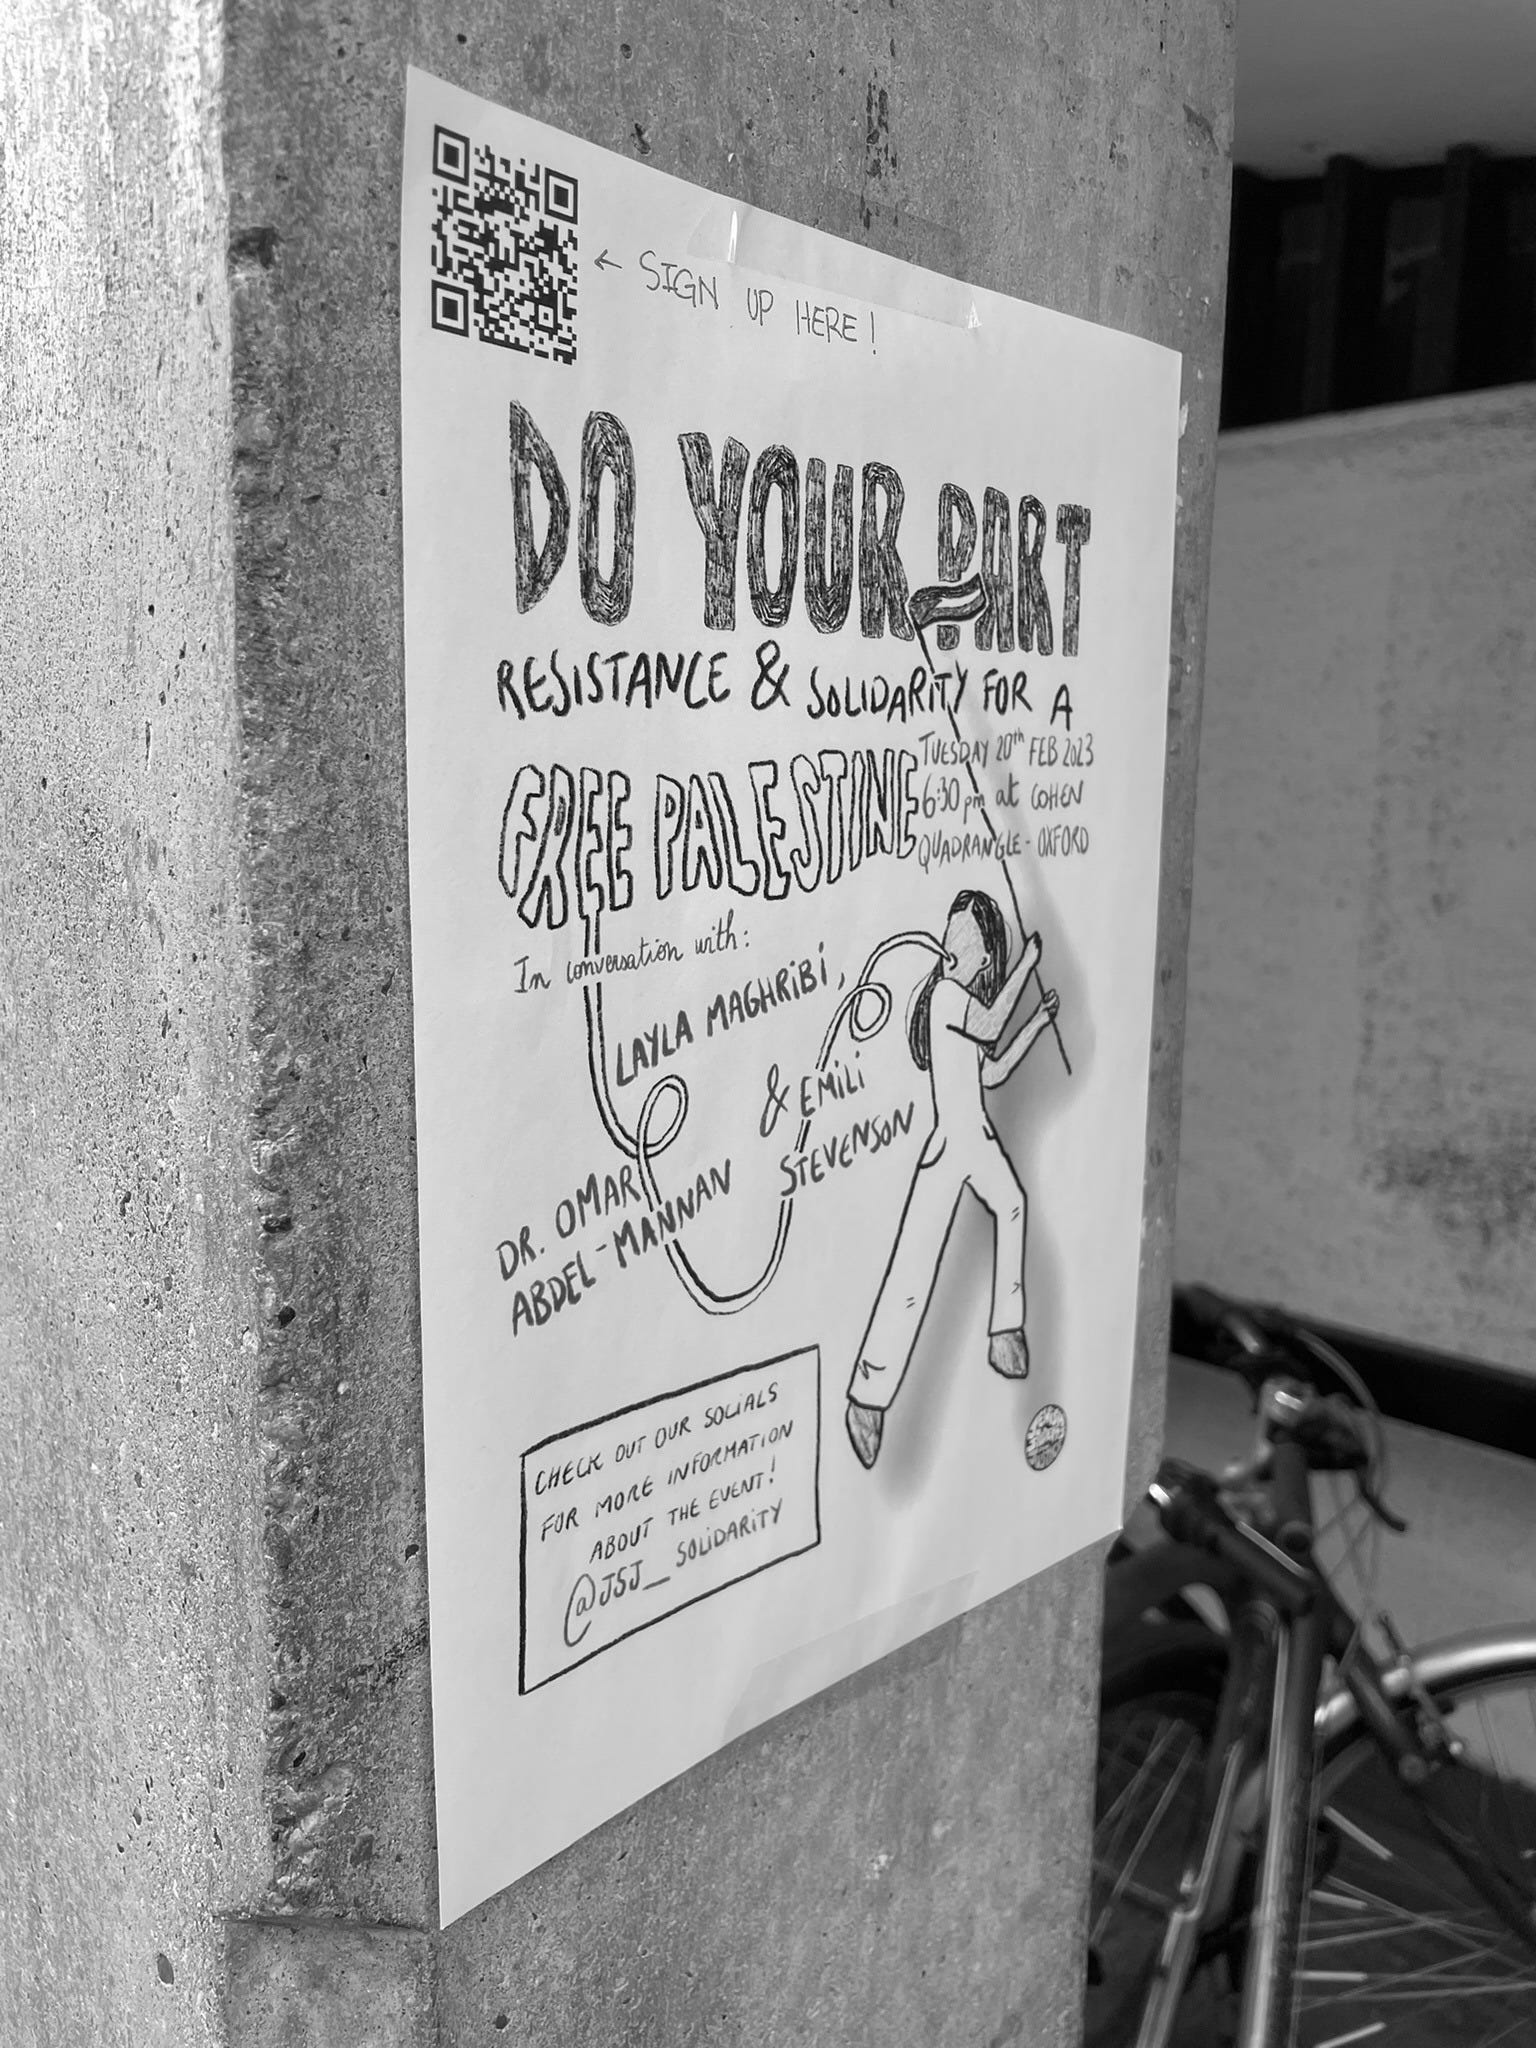 ← SIGN UP HERE!
DO YOUR PART
RESISTANCE & SOLIDARITY FOR A
FREE PALESTINE
TUESDAY 20th FEB 2023
6:30 pm at COHEN
QUADRANGLE - OXFORD
In conversation with:
LAYLA MAGHRIBI,
DR. OMAR
ABDEL-MANNAN
& EMILI
STEVENSON
CHECK OUT OUR SOCIALS
FOR MORE INFORMATION
ABOUT THE EVENT!
@JSJ_SOLIDARITY